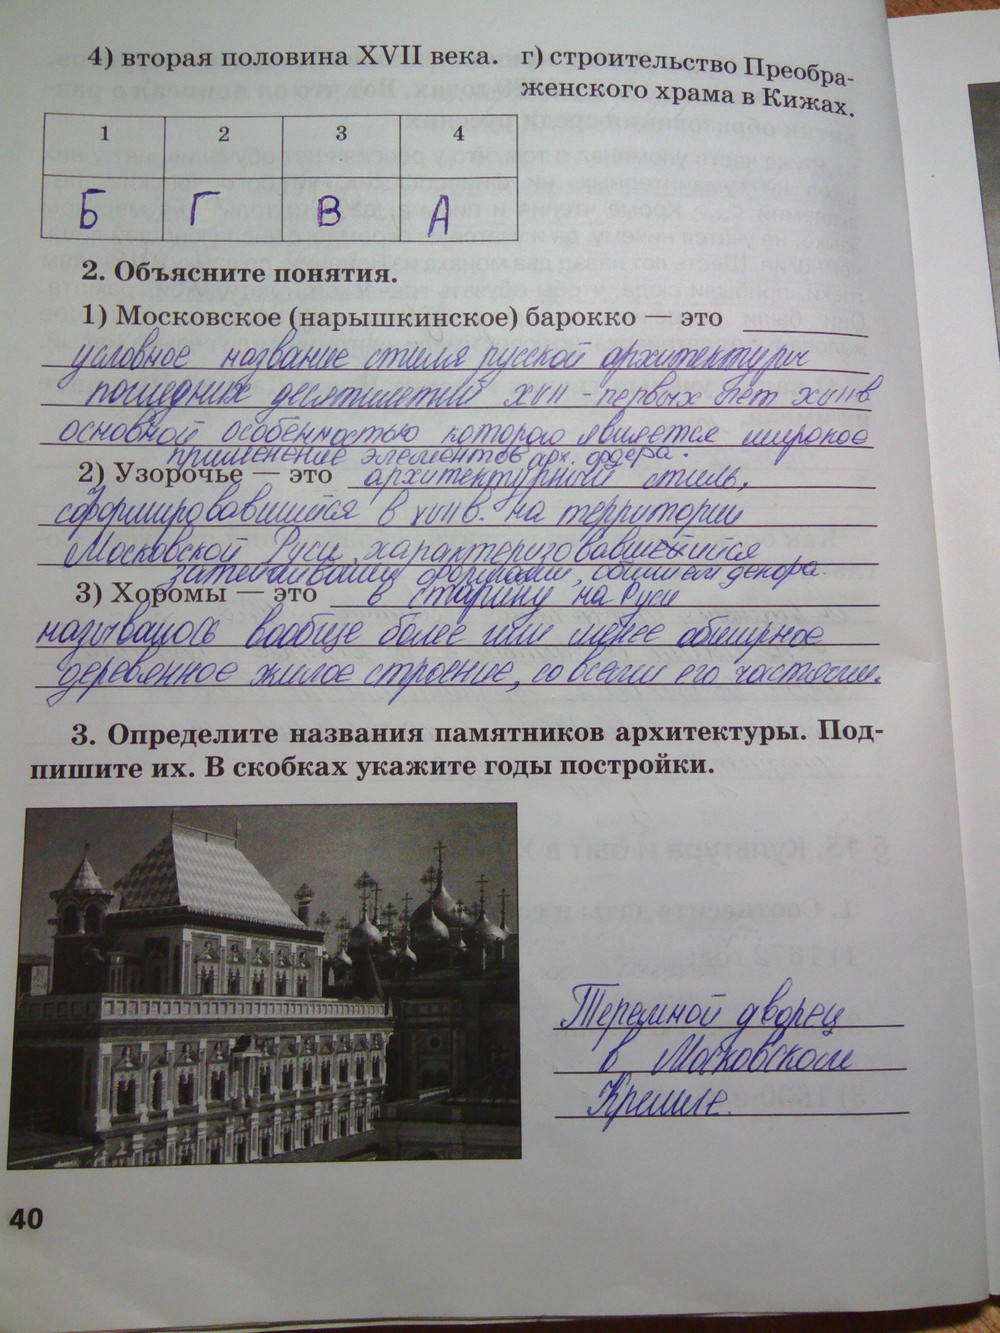 4) вторая половина XVII века. г) строительство Преобра-
женского храма в Кижах.
1 2 3 4
Б Г В А
2. Объясните понятия.
1) Московское (нарышкинское) барокко — это
условное название стиля русской архитектуры
последних десятилетий XVII - первых лет XVIII в
основной особенностью которого является широкое
применение элементов арх. ордера.
2) Узорочье — это архитектурный стиль,
сформировавшийся в XVII в. на территории
Московской Руси, характеризовавшейшися
затейливыми формами, обилием декора
3) Хоромы — это в старину на Руси
называлось вообще более или менее обширное
деревянное жилое строение, со всеми его частями.
3. Определите названия памятников архитектуры. Под-
пишите их. В скобках укажите годы постройки.
Теремной дворец
в Московском
Кремле.
40